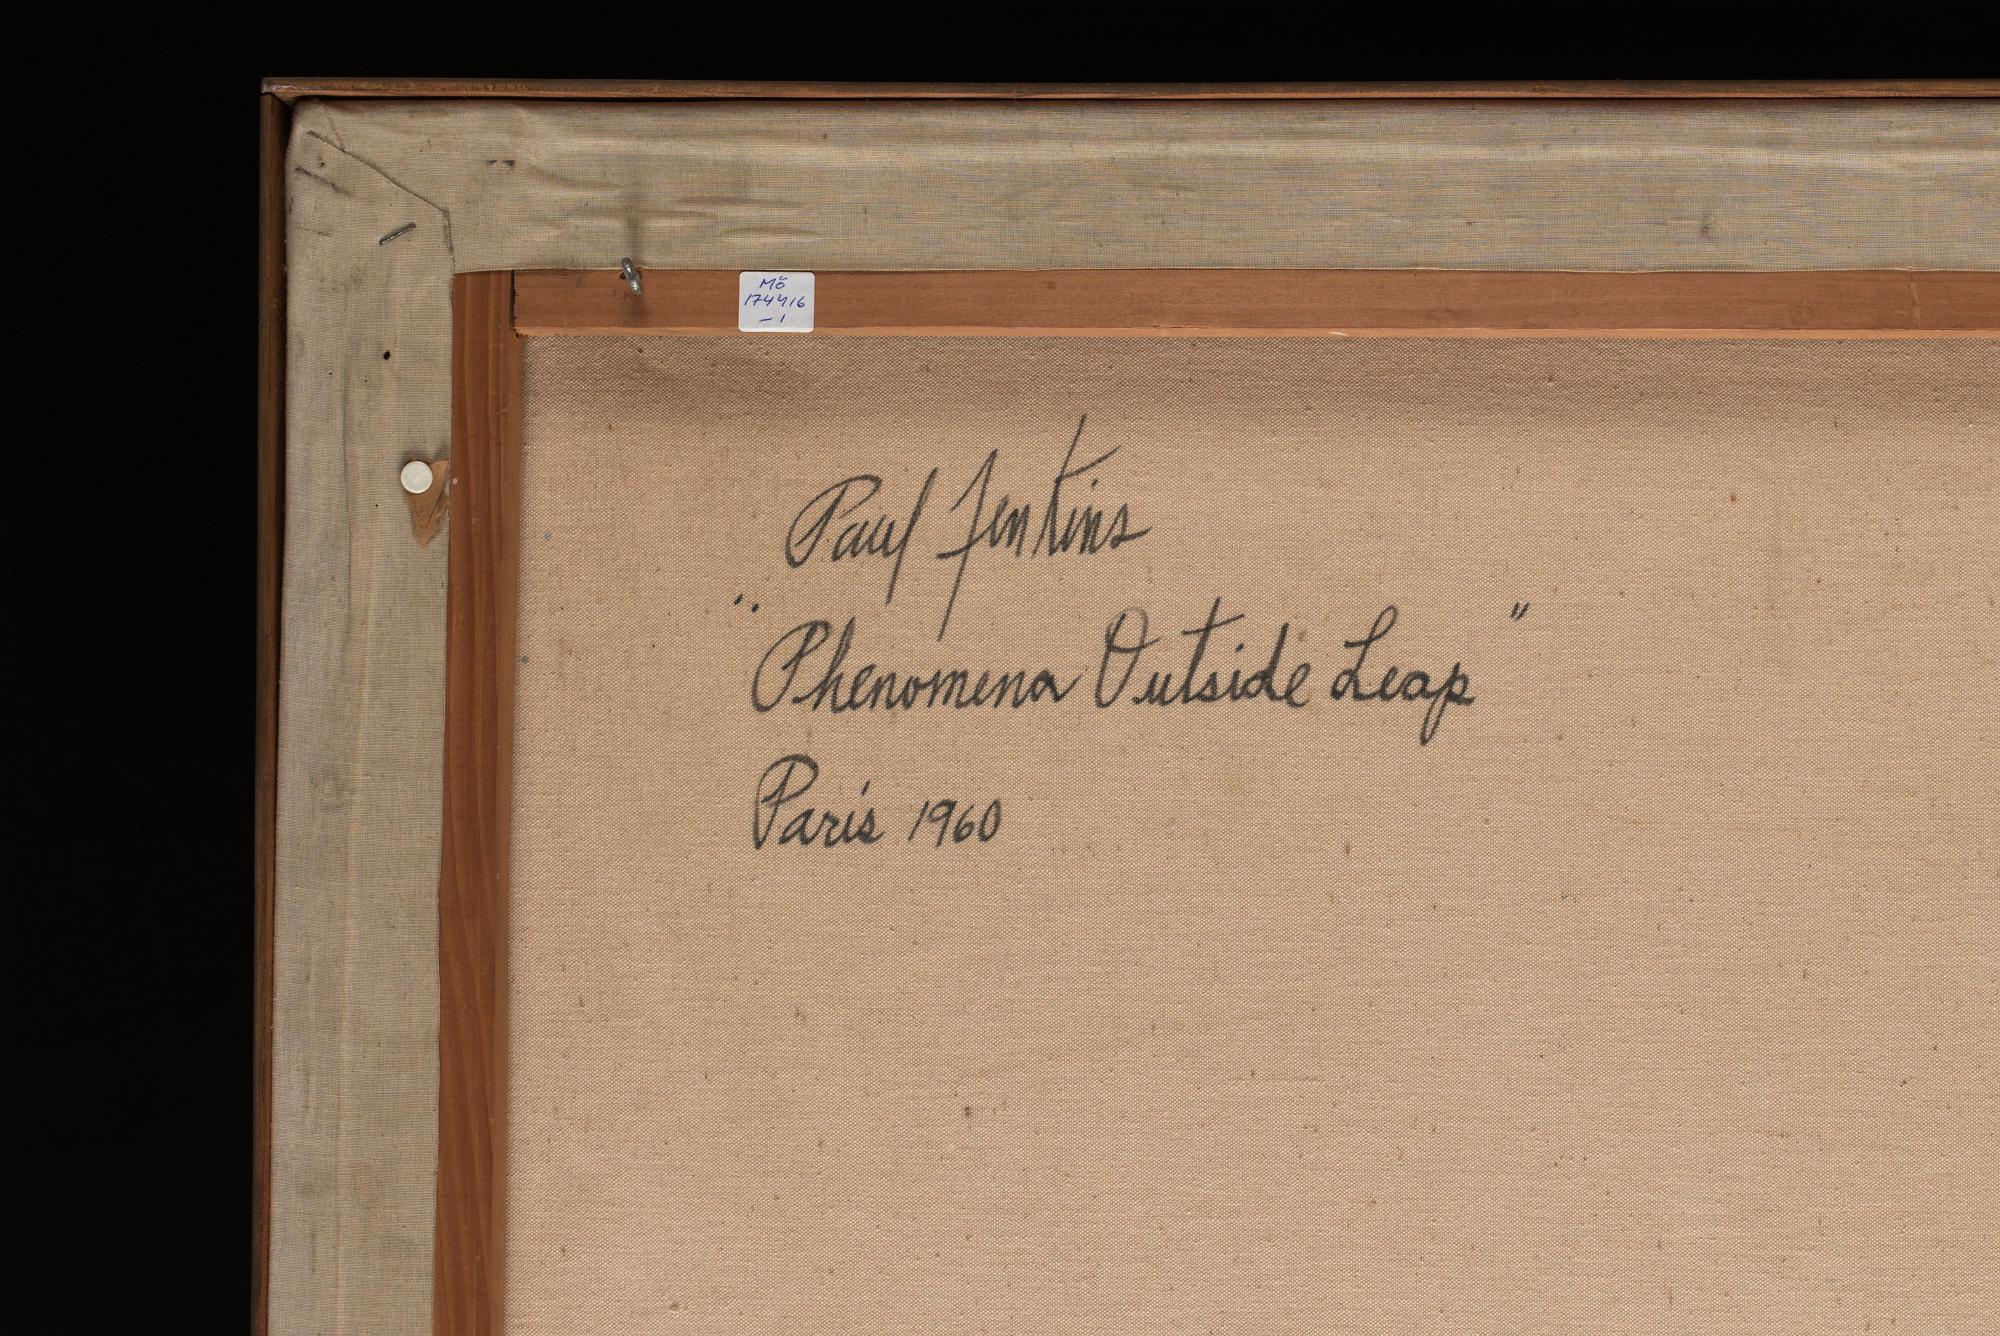 Mö
174416
- 1
Paul Jenkins
"Phenomena Outside Leap"
Paris 1960